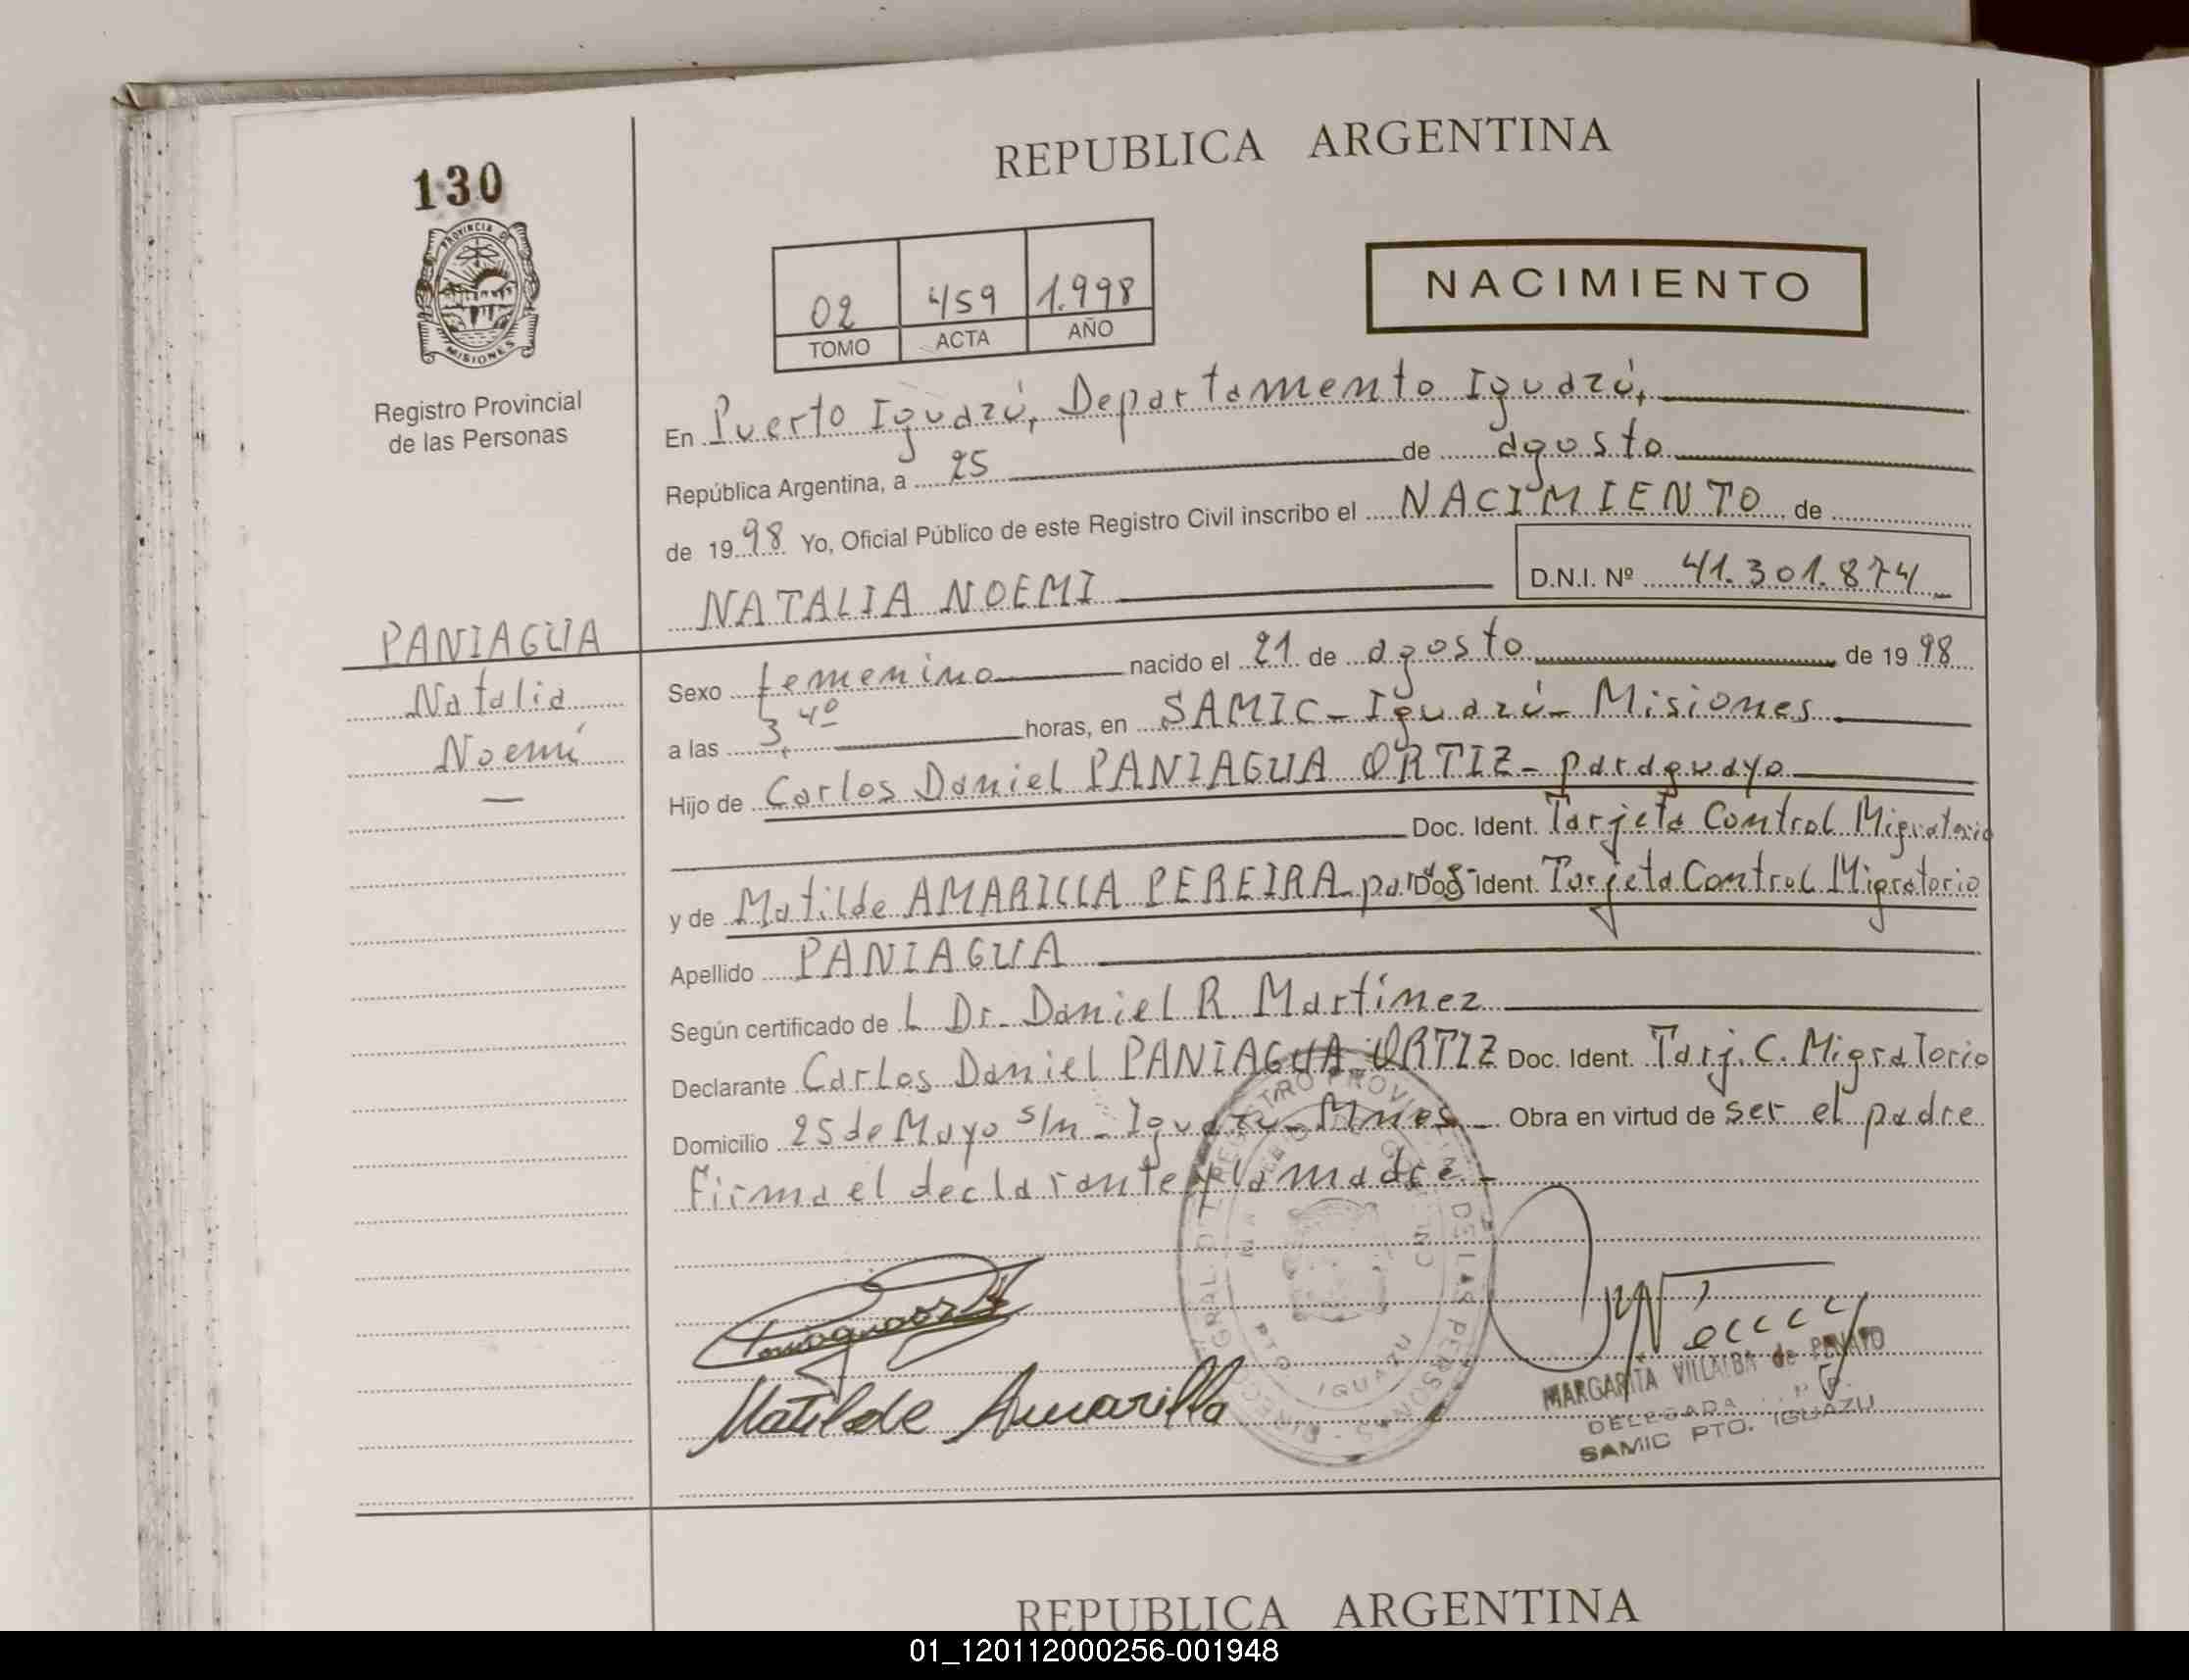 130
PROVINCIA DE
MISIONES
Registro Provincial
de las Personas
PANIAGUA
Natalia
Noemí
—
REPUBLICA ARGENTINA
02 459 1.998
TOMO ACTA AÑO
NACIMIENTO
En Puerto Iguazú, Departamento Iguazú,
República Argentina, a 25 de agosto
de 1998 Yo, Oficial Público de este Registro Civil inscribo el NACIMIENTO de
NATALIA NOEMI D.N.I. Nº 41.301.874
Sexo femenino nacido el 21 de agosto de 1998
a las 3,4º horas, en SAMIC - Iguazú - Misiones
Hijo de Carlos Daniel PANIAGUA ORTIZ - paraguayo
Doc. Ident. Tarjeta Control Migratorio
y de Matilde AMARILLA PEREIRA - Doc. Ident. Tarjeta Control Migratorio
Apellido PANIAGUA
Según certificado de L Dr. Daniel R. Martínez
Declarante Carlos Daniel PANIAGUA ORTIZ Doc. Ident. Tarj. C. Migratorio
Domicilio 25 de Mayo s/n - Iguazú - Mnes - Obra en virtud de ser el padre
Firma el declarante y la madre -
Matilde Amarilla
MARGARITA VILLALBA de
DELEGADA
SAMIC PTO. IGUAZU
PTO IGUAZU
REPUBLICA ARGENTINA
01_120112000256-001948